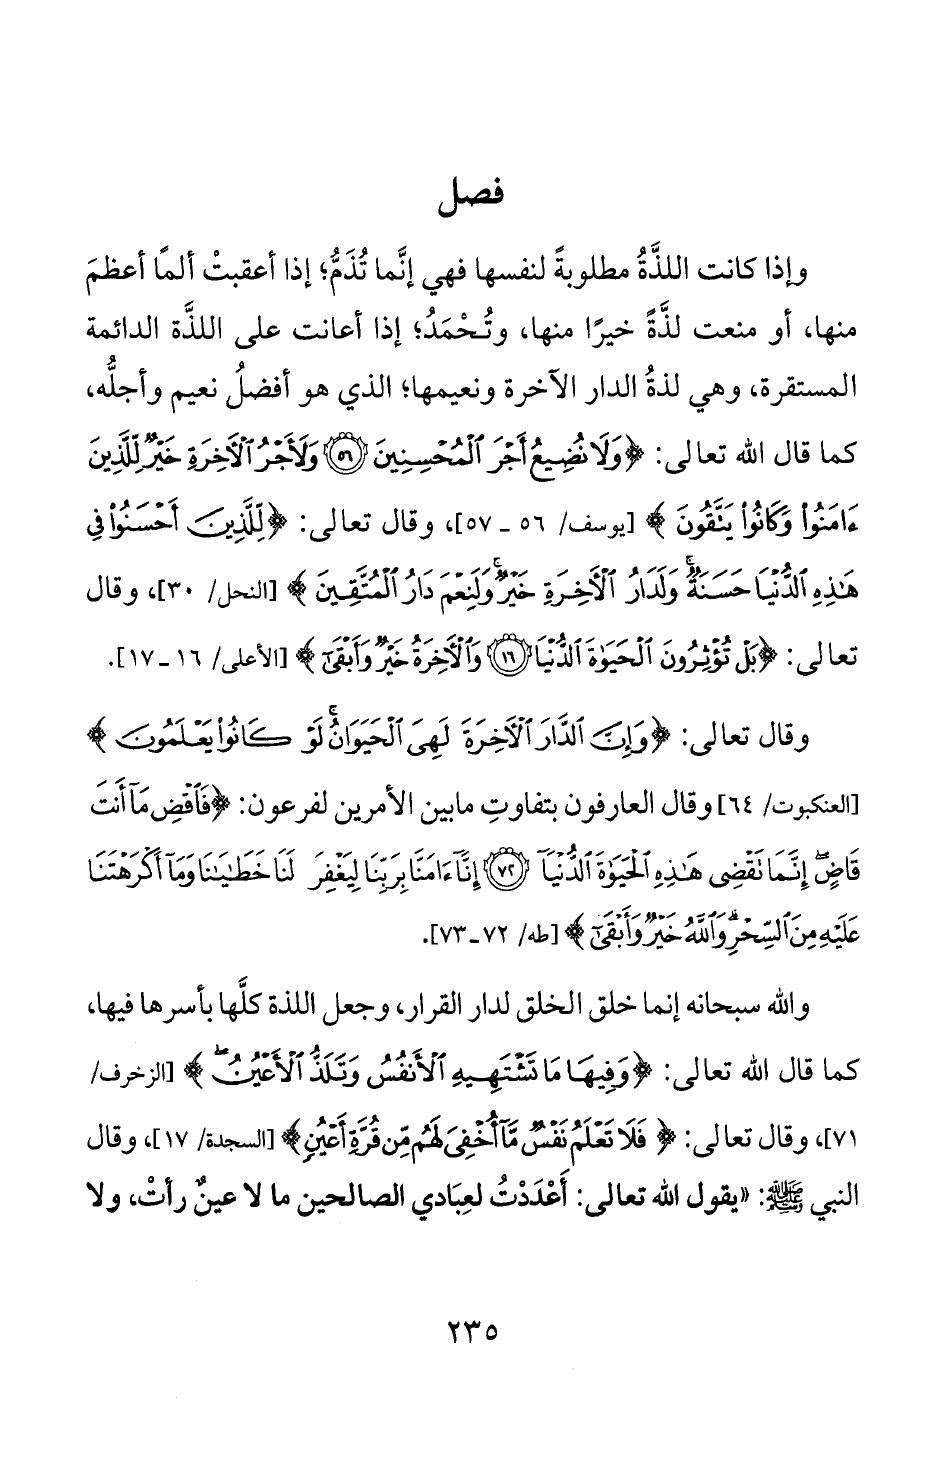 فصل
وإذا كانت اللذَّةُ مطلوبةً لنفسها فهي إنَّما تُذَمُّ؛ إذا أعقبتْ ألمًا أعظمَ
منها، أو منعت لذَّةً خيرًا منها، وتُحْمَدُ؛ إذا أعانت على اللذَّة الدائمة
المستقرة، وهي لذةُ الدار الآخرة ونعيمها؛ الذي هو أفضلُ نعيم وأجلُّه،
كما قال الله تعالى: ﴿وَلَا نُضِيعُ أَجْرَ ٱلْمُحْسِنِينَ ٥٦ وَلَأَجْرُ ٱلْأَخِرَةِ خَيْرٌ لِّلَّذِينَ
ءَامَنُوا۟ وَكَانُوا۟ يَتَّقُونَ﴾ [يوسف/ ٥٦ ـ ٥٧]، وقال تعالى: ﴿لِّلَّذِينَ أَحْسَنُوا۟ فِى
هَـٰذِهِ ٱلدُّنْيَا حَسَنَةٌ ۚ وَلَدَارُ ٱلْأَخِرَةِ خَيْرٌ ۚ وَلَنِعْمَ دَارُ ٱلْمُتَّقِينَ﴾ [النحل/ ٣٠]، وقال
تعالى: ﴿بَلْ تُؤْثِرُونَ ٱلْحَيَوٰةَ ٱلدُّنْيَا ١٦ وَٱلْأَخِرَةُ خَيْرٌ وَأَبْقَىٰٓ﴾ [الأعلى/ ١٦ ـ ١٧].
وقال تعالى: ﴿وَإِنَّ ٱلدَّارَ ٱلْأَخِرَةَ لَهِىَ ٱلْحَيَوَانُ ۚ لَوْ كَانُوا۟ يَعْلَمُونَ﴾
[العنكبوت/ ٦٤] وقال العارفون بتفاوتِ مابين الأمرين لفرعون: ﴿فَٱقْضِ مَآ أَنتَ
قَاضٍ ۖ إِنَّمَا تَقْضِى هَـٰذِهِ ٱلْحَيَوٰةَ ٱلدُّنْيَآ ٧٢ إِنَّآ ءَامَنَّا بِرَبِّنَا لِيَغْفِرَ لَنَا خَطَـٰيَـٰنَا وَمَآ أَكْرَهْتَنَا
عَلَيْهِ مِنَ ٱلسِّحْرِ ۗ وَٱللَّهُ خَيْرٌ وَأَبْقَىٰٓ﴾ [طه/ ٧٢ ـ ٧٣].
والله سبحانه إنما خلق الخلق لدار القرار، وجعل اللذة كلَّها بأسرها فيها،
كما قال الله تعالى: ﴿وَفِيهَا مَا تَشْتَهِيهِ ٱلْأَنفُسُ وَتَلَذُّ ٱلْأَعْيُنُ ۖ﴾ [الزخرف/
٧١]، وقال تعالى: ﴿فَلَا تَعْلَمُ نَفْسٌ مَّآ أُخْفِىَ لَهُم مِّن قُرَّةِ أَعْيُنٍ﴾ [السجدة/ ١٧]، وقال
النبي ﷺ: «يقول الله تعالى: أَعْدَدْتُ لعِبَادي الصالحين ما لا عينٌ رأتْ، ولا
٢٣٥